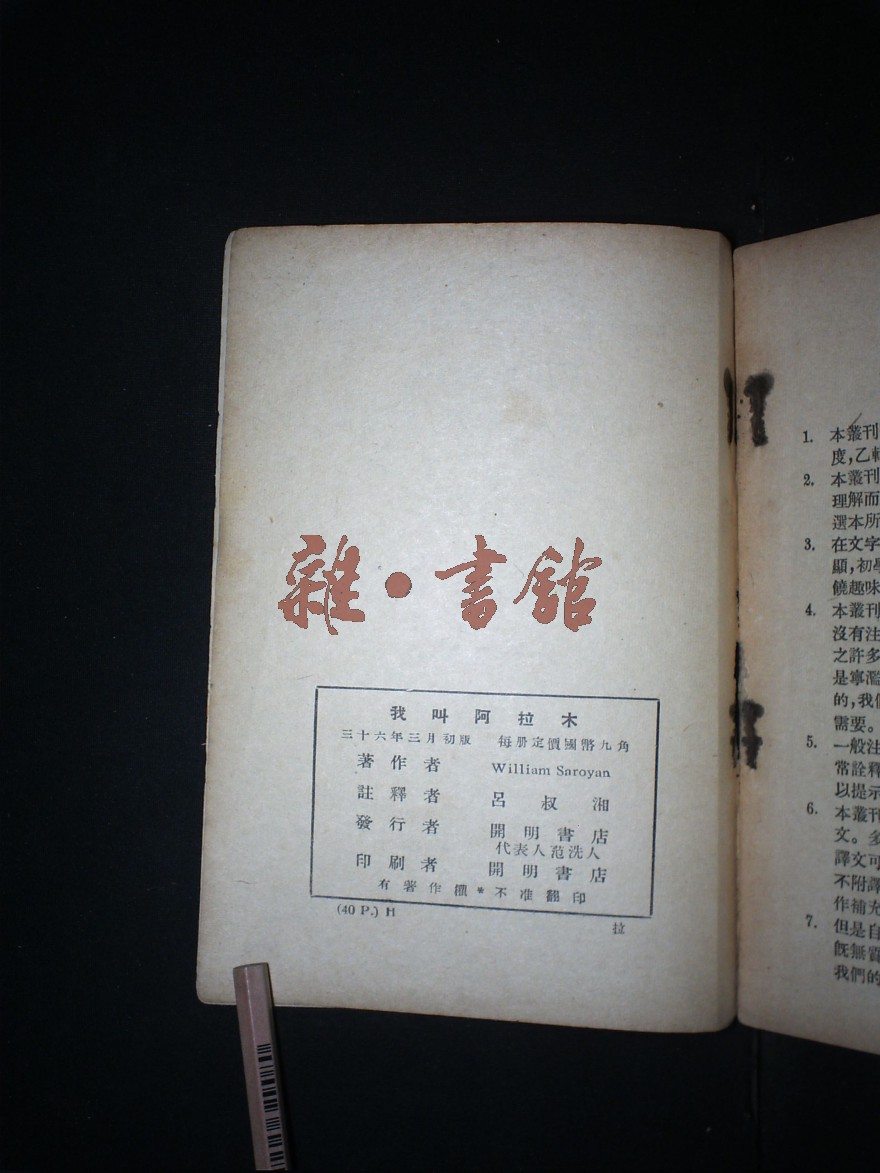 雜·書館
我叫阿拉木
三十六年三月初版 每册定價國幣九角
著作者 William Saroyan
註釋者 呂叔湘
發行者 開明書店
代表人范洗人
印刷者 開明書店
有著作權*不准翻印
(40 P.) H
拉
1. 本叢刊
度,乙輯
2. 本叢刊
理解而
選本所
3. 在文字
顯,初學
饒趣味
4. 本叢刊
沒有注
之許多
是寧濫
的,我們
需要。
5. 一般注
常詮釋
以提示
6. 本叢刊
文。多
譯文可
不附譯
作補充
7. 但是自
旣無
我們的